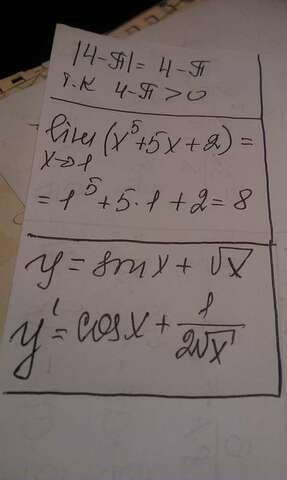 |4-П|= 4-П
т.к 4-П>0
lim (x⁵+5x+2)=
x→1
=1⁵+5·1+2=8
y=sinx+√x
y'=cosx+1/(2√x)